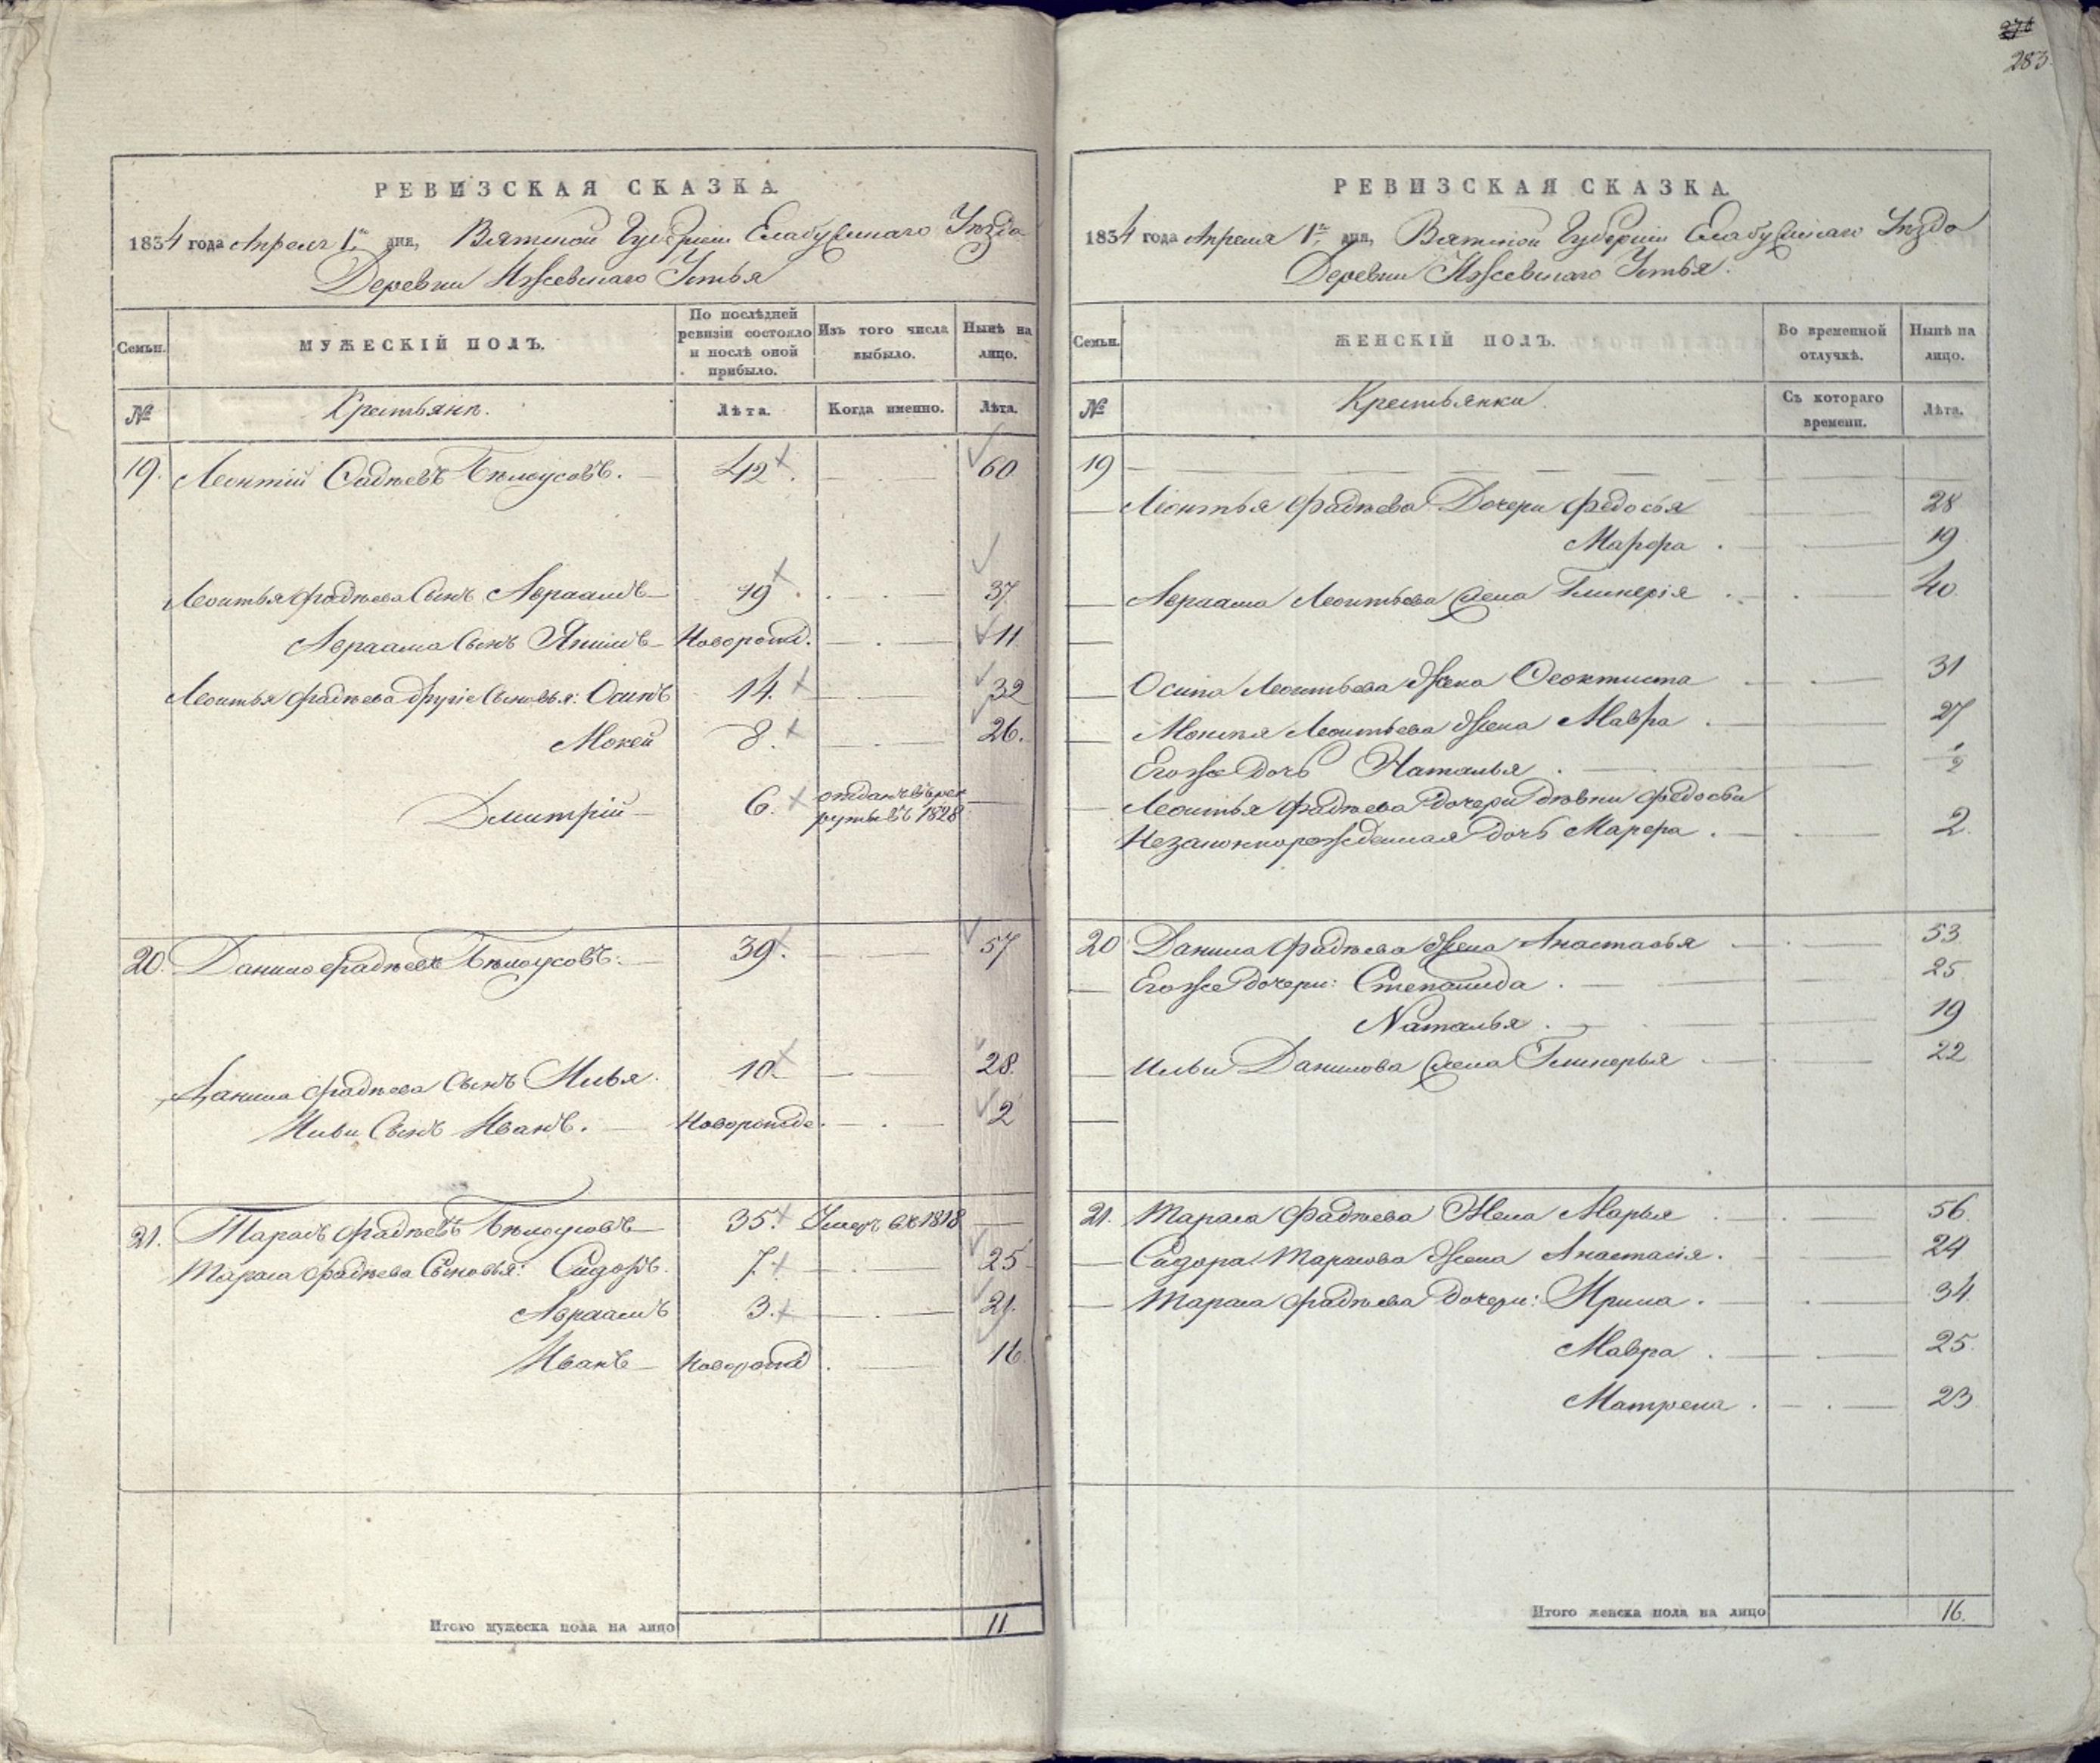 274
283.
РЕВИЗСКАЯ СКАЗКА.
1834 года Апреля 1го дня, Вятской Губернии Елабужскаго Уѣзда
Деревни Ижевскаго Устья
Семьи.
МУЖЕСКІЙ ПОЛЪ.
По послѣдней ревизіи состояло и послѣ оной прибыло.
Изъ того числа выбыло.
Нынѣ на лицо.
№
Крестьянъ.
Лѣта.
Когда именно.
Лѣта.
19. Леонтій Фадѣевъ Бѣлоусовъ. 42. 60
Леонтья Фадѣева Сынъ Авраамъ 19 37
Авраама Сынъ Якимъ Новорожд. 11
Леонтья Фадѣева другіе Сыновья: Осипъ 14. 32
Мокей 8. 26.
Дмитрій 6. отданъ въ рек
руты въ 1828
20. Данило Фадѣевъ Бѣлоусовъ. 39. 57
Данила Фадѣева Сынъ Илья. 10. 28.
Ильи Сынъ Иванъ. Новорожде. 2
21. Тарасъ Фадѣевъ Бѣлоусовъ 35. Умеръ въ 1818
Тараса Фадѣева Сыновья: Сидоръ. 7. 25
Авраамъ 3. 21.
Иванъ Новорожд. 16.
Итого мужеска пола на лицо 11
РЕВИЗСКАЯ СКАЗКА.
1834 года Апреля 1го дня, Вятской Губерніи Елабужскаго Уѣзда
Деревни Ижевскаго Устья.
Семьи.
ЖЕНСКІЙ ПОЛЪ.
Во временной отлучкѣ.
Нынѣ на лицо.
№
Крестьянки.
Съ котораго времени.
Лѣта.
19
Леонтья Фадѣева Дочери Федосья 28
Марфа . 19
Авраама Леонтьева Жена Гликерія . 40.
Осипа Леонтьева Жена Феоктиста 31
Мокея Леонтьева Жена Мавра . 27
Его же Дочь Наталья . 1/2
Леонтья Фадѣева дочери дѣвки Федосьи
Незаконнорожденная дочь Марфа . 2.
20 Данила Фадѣева Жена Анастасья 53.
Его же дочери: Степанида . 25.
Наталья . 19
Ильи Данилова Жена Гликерья 22
21. Тараса Фадѣева Жена Марья . 56.
Сидора Тарасова Жена Анастасія. 24
Тараса Фадѣева дочери: Ирина . 34
Мавра . 25.
Матрена . 23
Итого женска пола на лицо 16.